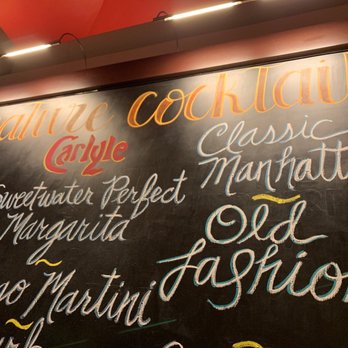 ature cocktail
Carlyle
Sweetwater Perfect
Margarita
~
no Martini
~
Classic
Manhatt
~
Old
Fashion
~